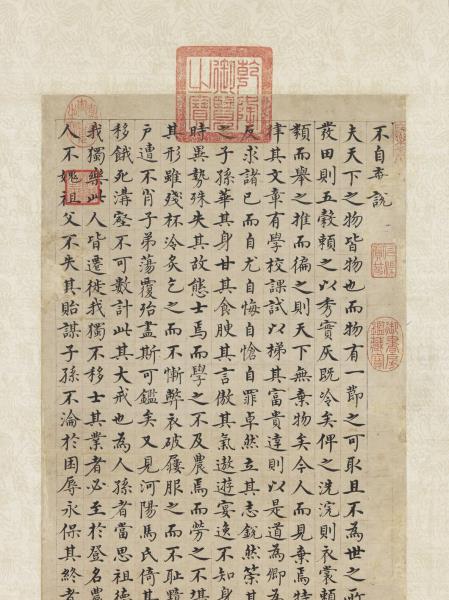 乾隆御覽之寶
不自弃說
夫天下之物皆物也而物有一節之可取且不為世之所
發田則五穀賴之以秀實灰既冷矣俾之洗浣則衣裳賴
類而舉之推而徧之則天下無棄物矣今人而見棄焉特
律其文章有學校課試以梯其富貴達則以是道為卿為
反求諸己而自尤自悔自愴自罪卓然立其志銳然策其
之子孫華其身甘其食腴其言傲其氣遨遊宴逸不知身
時異勢殊失其故態士焉而學之不及農焉而勞之不堪
其形雖殘杯冷炙乞之而不慚弊衣破屨服之而不恥黯
戶遭不肖子弟蕩覆殆盡斯可鑑矣又見河陽馬氏倚其
移餓死溝壑不可數計此其大戒也為人孫者當思祖德
我獨樂此人皆遷徙我獨不移士其業者必至於登名農
人不媿祖父不失其貽謀子孫不淪於困辱永保其終者
御書房鑑藏寶